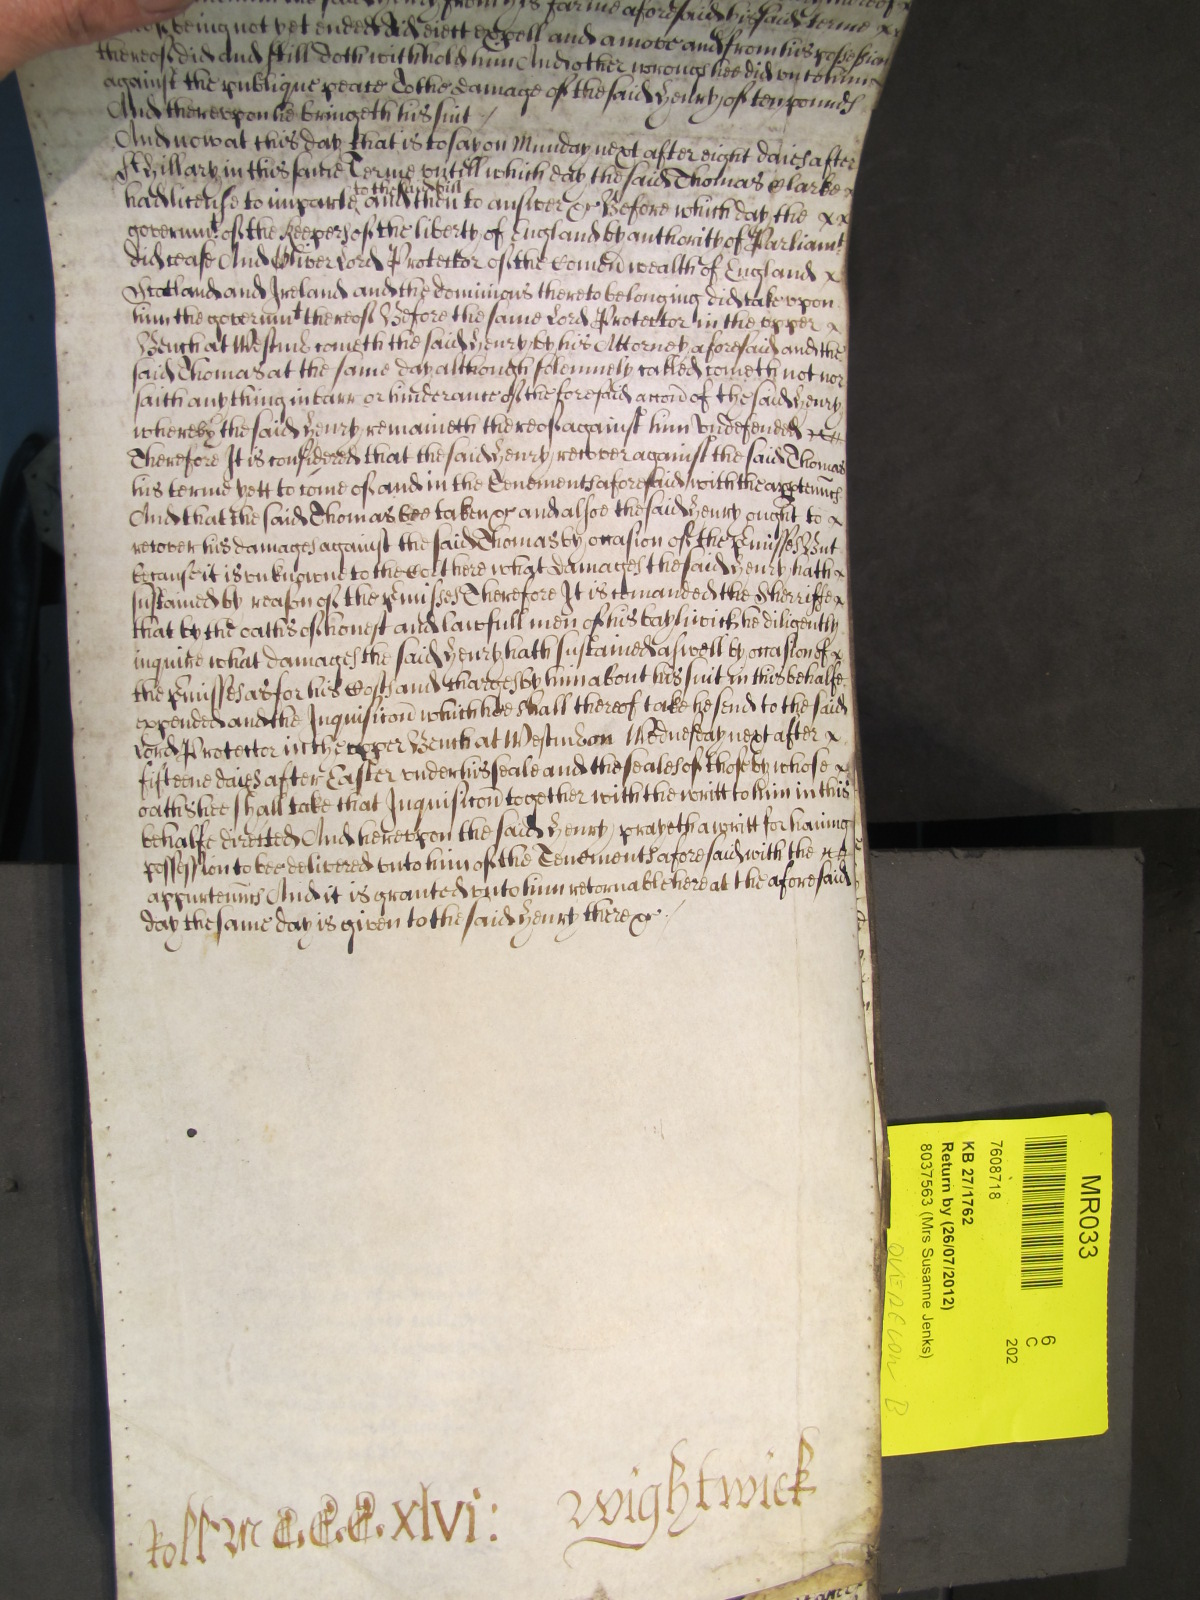 the said Henry from his farme aforesaid his said terme
being not yet ended did eiect expell and amove and from his possession
thereof did and still doth withhold him And other wrongs hee did vnto him
against the publique peace To the damage of the said Henry of ten pounds
And therevpon he bringeth his suit
And now at this day that is to say on Munday next after eight daies after
St Hillary in this same Terme vntill which day the said Thomas Clarke x
to the said bill
had license to imparle and then to answer &c Before which day the x x
governmt of the Keepers of the liberty of England by authority of Parliamt
did cease And Oliver Lord Protector of the Comon wealth of England x
Scotland and Ireland and the dominions thereto belonging did take vpon
him the governmt thereof Before the same Lord Protector in the vpper x
Bench at Westmr cometh the said Henry by his Attorney aforesaid and the
said Thomas at the same day although solemnely called cometh not nor
saith any thing in barr or hinderance of the foresaid accon of the said Henry
whereby the said Henry remaineth thereof against him vndefended
Therefore It is considered that the said Henry recover against the said Thomas
his terme yett to come of and in the Tenements aforesaid with the apptennces
And that the said Thomas bee taken &c and alsoe the said Henry ought to x
recover his damages against the said Thomas by occasion of the pmisses But
because it is vnknowne to the Cort here what damages the said Henry hath x
sustained by reason of the pmisses Therefore It is comanded the Sherriffe x
that by the oaths of honest and lawfull men of his bayliwick he diligently
inquire what damages the said Henry hath sustained aswell by occasion of x
the pmisses as for his Costs and charges by him about his suit in this behalfe
expended and the Inquisicon which hee shall thereof take he send to the said
Lord Protector in the vpper Bench at Westm on Wednesday next after x
fifteene daies after Easter vnder his seale and the seales of those by whose x
oaths hee shall take that Inquisicon together with the writt to him in this
behalfe directed And herevpon the said Henry prayeth a writt for having
possession to bee delivered vnto him of the Tenements aforesaid with the
appurtennces And it is granted vnto him retornable here at the aforesaid
day the same day is given to the said Henry there &c
Roll M C.C.C.xlvi: Wightwick
MR033
7608718
KB 27/1762
Return by (26/07/2012)
8037563 (Mrs Susanne Jenks)
6
C
202